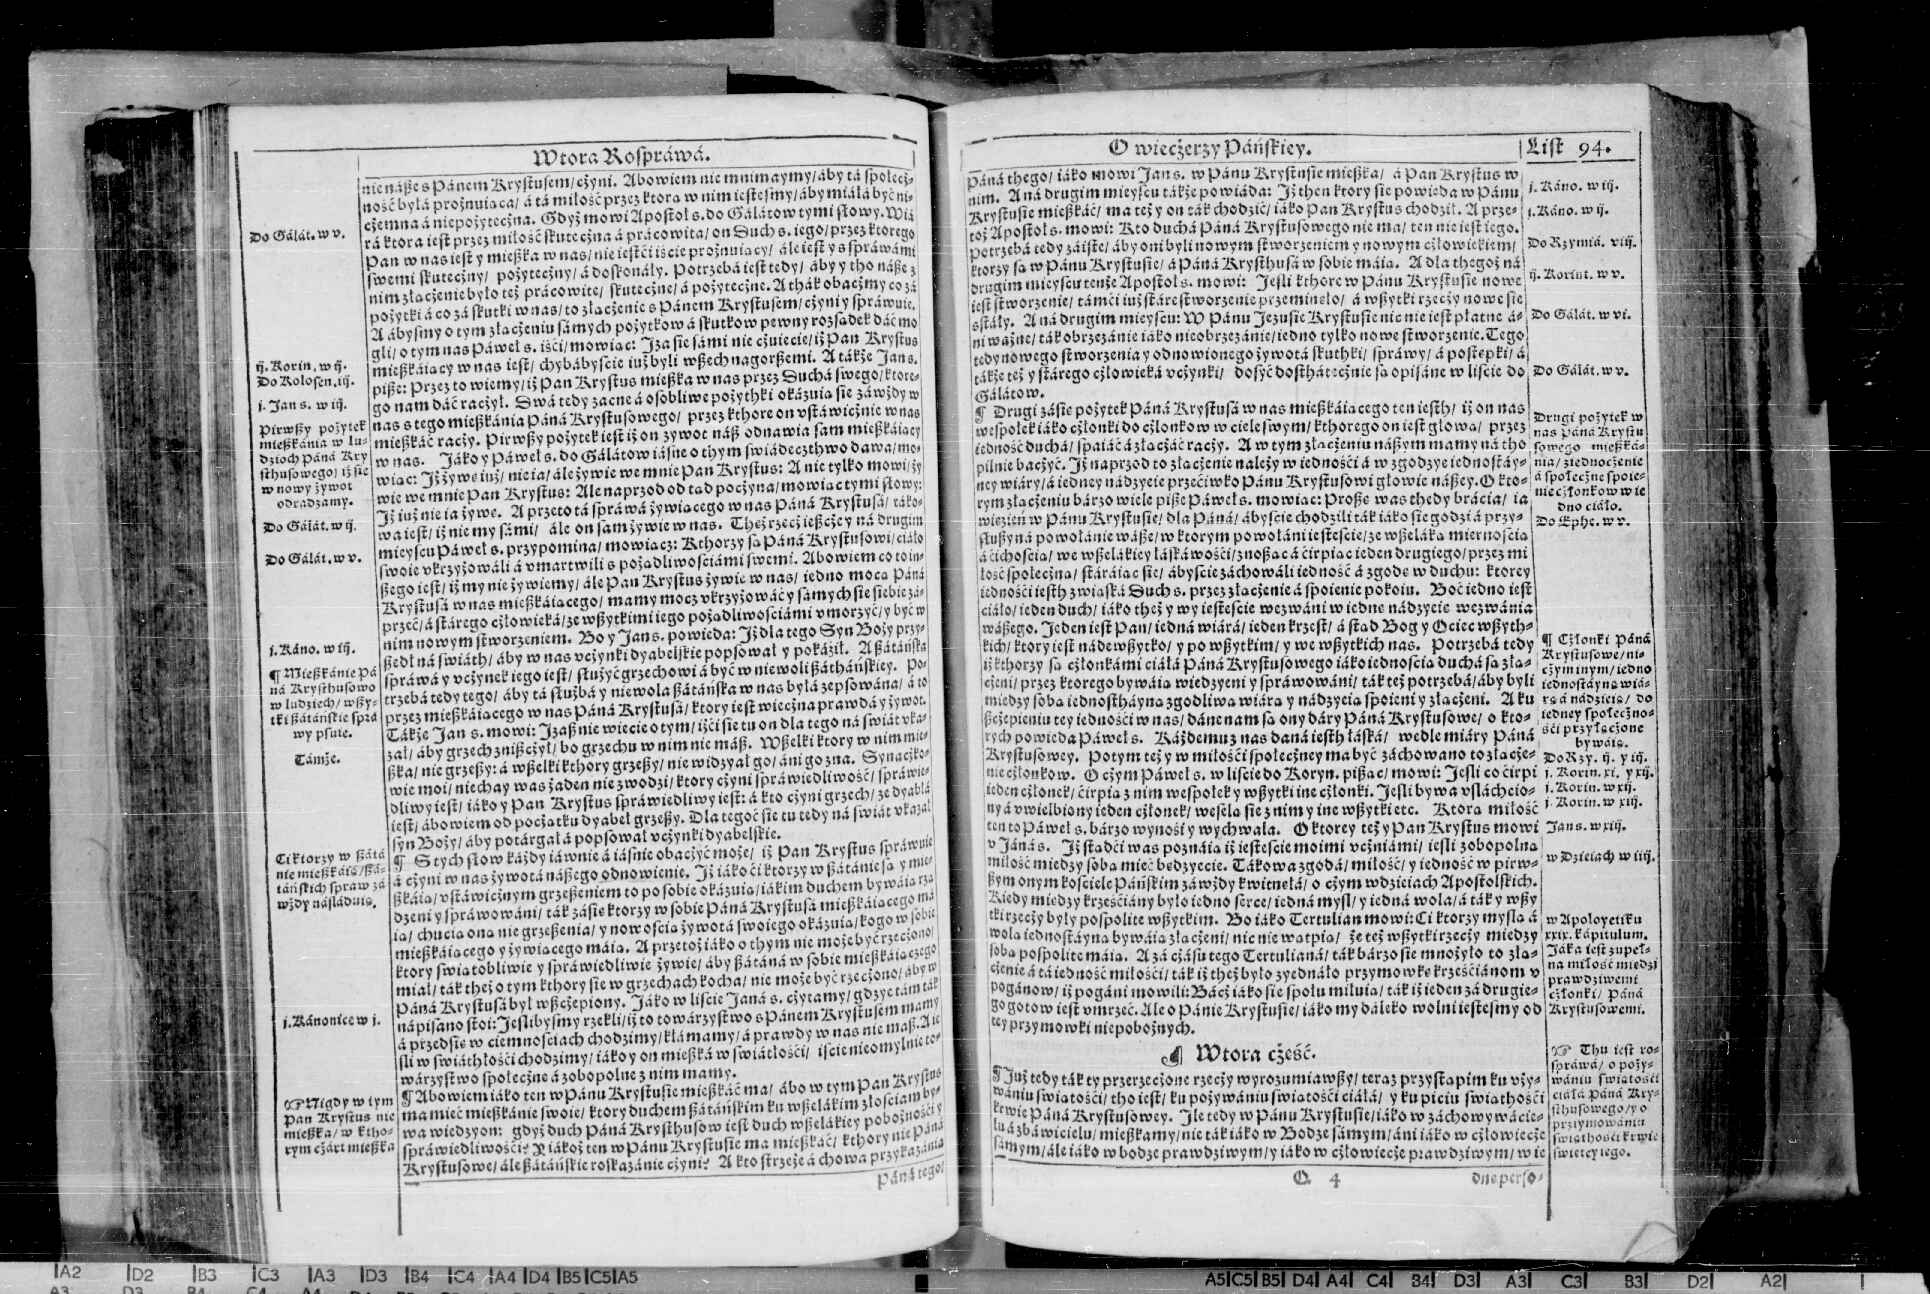 Wtora Rospráwá.
nie náße s Pánem Krystusem/ cżyni. Abowiem nie mnimaymy/ áby tá społecż-
ność byłá prożnuiąca/ á tá miłość przez ktorą w nim iestesmy/ áby miáłá być ni-
cżemna á niepożytecżna. Gdyż mowi Apostoł s. do Gálátow tymi słowy. Wiá
rá ktora iest przez miłość skutecżna á pracowita/ on Duch s. iego/ przez ktorego
Pan w nas iest y mießka w nas/ nie iestći iście prożnuiący/ ále iest y s spráwámi
swemi skutecżny/ pożytecżny/ á doskonáły. Potrzebá iest tedy/ áby y tho náße z
nim złącżenie było też prácowite/ skutecżne/ á pożytecżne. A ták obacżmy co zá
pożytki á co zá skutki w nas/ to złącżenie s Pánem Krystusem/ cżyni y spráwuie.
A ábysmy o tym złącżeniu sámych pożytkow á skutkow pewny rozsądek dáć mo
gli/ o tym nas Páweł s. iśći/ mowiąc: Iza sie sámi nie cżuiecie/ iż Pan Krystus
mießkáiący w nas iest/ chybábyscie iuż byli wßech nagorßemi. A tákże Jan s.
piße: Przez to wiemy/ iż Pan Krystus mießka w nas przez Duchá swego/ ktore-
go nam dáć racżył. Dwá tedy zacne á osobliwe pożythki okázuią sie záwżdy w
nas s tego mießkánia Páná Krystusowego/ przez kthore on vstáwicżnie w nas
mießkáć racży. Pirwßy pożytek iest iż on żywot náß odnawia sam mießkáiący
w nas. Jáko y Páweł s. do Gálátow iásne o thym świádecżthwo dawa/ mo-
wiąc: Iż żywę iuż/ nie ia/ ále żywie we mnie Pan Krystus: A nie tylko mowi/ ży
wie we mnie Pan Krystus: Ale naprzod od tąd pocżyna/ mowiąc tymi słowy:
Iż iuż nie ia żywę. A przeto tá spráwá żywiącego w nas Páná Krystusá/ táko-
wa iest/ iż nie my sámi/ ále on sam żywie w nas. Theż rzecż ießcże y ná drugim
mieyscu Páweł s. przypomina/ mowiącz: Kthorzy są Páná Krystusowi/ ciáło
swoie vkrzyżowáli á vmartwili s pożądliwościámi swemi. Abowiem co to in-
ßego iest/ iż my nie żywiemy/ ále Pan Krystus żywie w nas/ iedno mocą Páná
Krystusá w nas mießkáiącego/ mamy mocz vkrzyżowáć y sámych sie siebie zá-
przeć/ á stárego cżłowieká/ ze wßytkimi iego pożądliwościámi vmorzyć/ y być w
nim nowym stworzeniem. Bo y Jan s. powieda: Iż dla tego Syn Boży przy-
ßedł ná świáth/ áby w nas vcżynki dyabelskie popsował y pokáźił. A ßátáńska
spráwá y vcżynek iego iest/ służyć grzechowi á być w niewoli ßátháńskiey. Po-
trzebá tedy tego/ áby tá służbá y niewola ßátáńska w nas byłá zepsowána/ á to
przez mießkáiącego w nas Páná Krystusá/ ktory iest wiecżna prawdá y żywot.
Tákże Jan s. mowi: Izaß nie wiecie o tym/ iżći sie tu on dla tego ná świát vka-
zał/ áby grzech zniszcżył/ bo grzechu w nim nie máß. Wßelki ktory w nim mie-
ßka/ nie grzeßy: á wßelki kthory grzeßy/ nie widzyał go/ áni go zna. Synacżko-
wie moi/ niechay was żaden nie zwodzi/ ktory cżyni spráwiedliwość/ spráwie-
dliwy iest/ iáko y Pan Krystus spráwiedliwy iest: á kto cżyni grzech/ ze dyabłá
iest/ ábowiem od pocżątku dyabeł grzeßy. Dla tegoć sie tu tedy ná świát vkazał
syn Boży/ áby potárgał á popsował vcżynki dyabelskie.
¶ S tych słow káżdy iáwnie á iáśnie obacżyć może/ iż Pan Krystus spráwuie
á cżyni w nas żywotá nászego odnowienie. Iż iákoći ktorzy w ßátánie są y mie-
ßkáią/ vstáwicżnym grzeßeniem to po sobie okázuią/ iákim duchem bywáią rzą
dzeni y spráwowáni/ ták zásie ktorzy w sobie Páná Krystusá mießkáiącego má
ią/ chucią oną nie grzeßenia/ y nowością żywotá swoiego okázuią/ kogo w sobie
mießkáiącego y żywiącego máią. A przetoż iáko o thym nie może być rzecżono/
ktory świątobliwie y spráwiedliwie żywie/ áby ßátáná w sobie mießkáiącego
miał/ ták theż o tym kthory sie w grzechach kocha/ nie może być rzecżono/ áby w
Páná Krystusá był wßcżepiony. Jáko w liście Janá s. cżytamy/ gdzyć tám ták
nápisano stoi: Jeslibysmy rzekli/ iż to towárzystwo s Pánem Krystusem mamy
á przedsie w ciemnościach chodzimy/ kłámamy/ á prawdy w nas nie máß. A ie
śli w swiáthłośći chodzimy/ iáko y on mießka w swiátłośći/ iście nieomylnie to-
wárzystwo społecżne á zobopolne z nim mamy.
¶ Abowiem iáko ten w Pánu Krystusie mießkáć ma/ ábo w tym Pan Krystus
ma mieć mießkánie swoie/ ktory duchem ßátáńskim ku wßelákim złościam by-
wa wiedzyon: gdyż duch Páná Krysthusow iest duch wßelákiey pobożnośći y
spráwiedliwośći? Y iákoż ten w Pánu Krystusie ma mießkáć/ kthory nie Páná
Krystusowe/ ále ßátáńskie roskazánie cżyni? A kto strzeże á chowa przykazánia
Páná tego/
Do Gálát. w v.
ij. Korin. w ij.
Do Kolosen. iij.
j. Jan s. w iij.
Pirwßy pożytek
mießkánia w lu-
dzioch Páná Kry
sthusowego/ iż sie
w nowy żywot
odradzamy.
Do Gálát. w ij.
Do Gálát. w v.
j. Káno. w iij.
¶ Mießkánie Pá
ná Krysthusowo
w ludziech/ wßy-
tki ßátáńskie sprá
wy psuie.
Támże.
Ci ktorzy w ßátá
nie mießkáią/ ßá-
táńskich spraw zá
wżdy násláduią.
j. Kánonice w j.
☞ Nigdy w tym
Pan Krystus nie
mießka/ w ktho-
rym cżárt mießka
O wiecżerzy Páńskiey.
List 94.
Páná thego/ iáko mowi Jan s. w Pánu Krystusie mießka/ á Pan Krystus w
nim. A ná drugim mieyscu tákże powiáda: Iż then ktory sie powieda w Pánu
Krystusie mießkáć/ ma też y on ták chodzić/ iáko Pan Krystus chodził. A prze-
toż Apostoł s. mowi: Kto duchá Páná Krystusowego nie ma/ ten nie iest iego.
Potrzebá tedy záiste/ áby oni byli nowym stworzeniem y nowym cżłowiekiem/
ktorzy są w Pánu Krystusie/ á Páná Krysthusá w sobie máią. A dla thegoż ná
drugim mieyscu tenże Apostoł s. mowi: Jesli kthore w Pánu Krystusie nowe
iest stworzenie/ támći iuż stáre stworzenie przeminęło/ á wßytki rzecży nowe sie
sstáły. A ná drugim mieyscu: W Pánu Jezusie Krystusie nic nie iest płatne á-
ni ważne/ ták obrzezánie iáko nieobrzezánie/ iedno tylko nowe stworzenie. Tego
tedy nowego stworzenia y odnowionego żywotá skuthki/ spráwy/ á postępki/ á
tákże też y stárego cżłowieká vcżynki/ dosyć dosthátecżnie są opisáne w liście do
Gálátow.
¶ Drugi zásie pożytek Páná Krystusá w nas mießkáiącego ten iesth/ iż on nas
wespołek iáko cżłonki do cżłonkow w ciele swym/ kthorego on iest głową/ przez
iedność duchá/ spáiáć á złącżáć racży. A w tym złącżeniu nászym mamy ná tho
pilnie bacżyć. Iż naprzod to złącżenie należy w iednośći á w zgodzye iednostáy-
ney wiáry/ á iedney nádzyeie przećiwko Pánu Krystusowi głowie nászey. O kto-
rym złącżeniu bárzo wiele piße Páweł s. mowiąc: Proßę was thedy brácia/ ia
więzień w Pánu Krystusie/ dla Páná/ ábyście chodzili ták iáko sie godzi á przy-
słußy ná powołánie wáße/ w ktorym powołáni iesteście/ ze wßeláką miernością
á cichością/ we wßelákiey łáskáwośći/ znosząc á cirpiąc ieden drugiego/ przez mi
łość społecżną/ stáráiąc sie/ ábyście záchowáli iedność á zgodę w duchu: ktorey
iednośći iesth zwiąską Duch s. przez złącżenie á spoienie pokoiu. Boć iedno iest
ciáło/ ieden duch/ iáko theż y wy iesteście wezwáni w iedne nádzyeie wezwánia
wászego. Jeden iest Pan/ iedná wiárá/ ieden krzest/ á stąd Bog y Ociec wßyth-
kich/ ktory iest nádewßytko/ y po wßytkim/ y we wßytkich nas. Potrzebá tedy
iż kthorzy są cżłonkámi ciáłá Páná Krystusowego iáko iednością duchá są złą-
cżeni/ przez ktorego bywáią wiedzyeni y spráwowáni/ ták też potrzebá/ áby byli
miedzy sobą iednosthayną zgodliwą wiárą y nádzyeią spoieni y złącżeni. A ku
ßcżepieniu tey iednośći w nas/ dáne nam są ony dáry Páná Krystusowe/ o kto-
rych powieda Páweł s. Káżdemuż nas dána iesth łáská/ wedle miáry Páná
Krystusowey. Potym też y w miłośći społecżney ma być záchowano to złącże-
nie cżłonkow. O cżym Páweł s. w liście do Koryn. pißąc/ mowi: Jesli co cirpi
ieden cżłonek/ cirpią z nim wespołek y wßytki ine cżłonki. Jesli bywa vsláchcio-
ny á vwielbiony ieden cżłonek/ weselą sie z nim y ine wßytki etc. Ktorą miłość
ten to Páweł s. bárzo wynosi y wychwala. O ktorey też y Pan Krystus mowi
v Janá s. Iż stądći was poznáią iż iesteście moimi vcżniámi/ iesli zobopolną
miłość miedzy sobą mieć będzyecie. Tákowa zgodá/ miłość/ y iedność w pirw-
ßym onym kościele Páńskim záwżdy kwitnęłá/ o cżym w dzieiach Apostolskich.
Kiedy miedzy krześciány było iedno serce/ iedná mysl/ y iedná wola/ á ták y wßy
tki rzecży były pospolite wßytkim. Bo iáko Tertulian mowi: Ci ktorzy myslą á
wolą iednostáyną bywáią złącżeni/ nic nie wątpią/ że też wßytki rzecży miedzy
sobą pospolite máią. A zá cżásu tego Tertulianá/ ták bárzo sie mnożyło to złą-
cżenie á tá iedność miłości/ ták iż theż było zyednáło przymowkę krześciánom v
pogánow/ iż pogáni mowili: Bácż iáko sie społu miłuią/ ták iż ieden zá drugie-
go gotow iest vmrzeć. Ale o Pánie Krystusie/ iáko my dáleko wolni iestesmy od
tey przymowki niepobożnych.
¶ Wtora cżęść.
¶ Już tedy ták ty przerzecżone rzecży wyrozumiawßy/ teraz przystąpim ku vży-
wániu świątośći/ tho iest/ ku pożywániu świątośći ciáłá/ y ku piciu świąthośći
krwie Páná Krystusowey. Ile tedy w Pánu Krystusie/ iáko w záchowywácie-
lu á zbáwicielu/ mießkamy/ nie ták iáko w Bodze sámym/ áni iáko w cżłowiecże
sámym/ ále iáko w bodze prawdziwym/ y iáko w cżłowiecże prawdziwym/ w ie
Q 4
dnę perso-
j. Káno. w iij.
j. Káno. w ij.
Do Rzymiá. viij.
ij. Korint. w v.
Do Gálát. w vi.
Do Gálát. w v.
Drugi pożytek w
nas Páná Krystu
sowego mießká-
nia/ ziednocżenie
á społecżne spoie-
nie cżłonkow w ie
dno ciáło.
Do Ephe. w v.
¶ Cżłonki Páná
Krystusowe/ ni-
cżym inym/ iedno
iednostáyną wiá-
rą á nádzieią/ do
iedney społecżno-
śći przyłącżone
bywáią.
Do Rzy. ij. y iij.
j. Korin. xi. y xij.
j. Korin. w xij.
j. Korin. w xiij.
Jan s. w xiij.
w Dzieiach w iiij.
w Apoloyetiku
xxix. kápitulum.
Jáka iest zupeł-
na miłość miedzi
prawdziwemi
cżłonki/ Páná
Krystusowemi.
☞ Thu iest ro-
spráwá/ o poży-
wániu świątośći
ciáłá Páná Kry-
sthusowego/ y o
przyimowániu
świąthośći krwie
świętey iego.
A2 D2 B3 C3 A3 D3 B4 C4 A4 D4 B5 C5 A5
A5 C5 B5 D4 A4 C4 B4 D3 A3 C3 B3 D2 A2